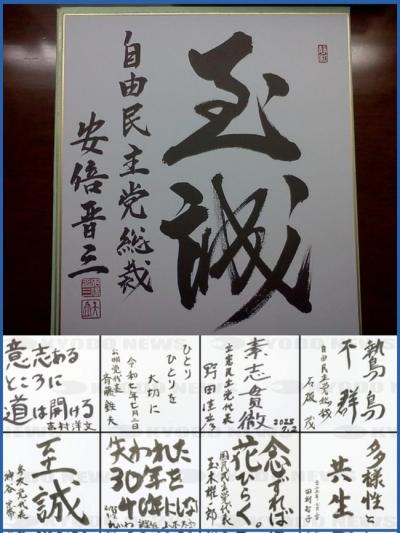 至誠
自由民主党総裁
安倍晋三
鷙鳥
不群
自由民主党総裁
石破 茂
素志貫徹
立憲民主党代表
野田佳彦
2025
7.2
ひとり
ひとりを
大切に
令和七年七月二日
公明党代表
斉藤鉄夫
意志ある
ところに
道は開ける
吉村洋文
多様性と
共生
田村智子
念ずれば
花ひらく。
国民民主党代表
玉木雄一郎
失われた
30年を
40年にしない
至誠
参政党代表
神谷宗幣
KYODO NEWS